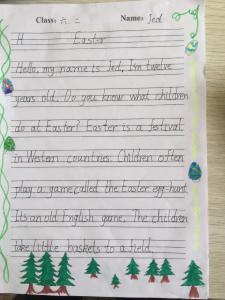 Class: 六.二 Name: Jed
H Easter
Hello, my name is Jed. I'm twelve
years old. Do you know what children
do at Easter? Easter is a festival
in Western countries. Children often
play a game called the Easter egg-hunt.
It's an old English game. The children
take little baskets to a field.